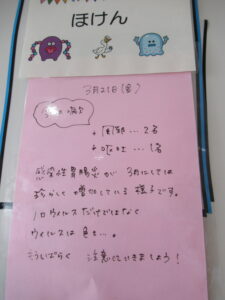 ほけん
3月21日(金)
風邪…2名
嘔吐…1名
感染性胃腸炎が3月にしては
珍しく増加している様子です。
ノロウイルスだけではなく
ウイルスは色々…。
もうしばらく 注意していきましょう!